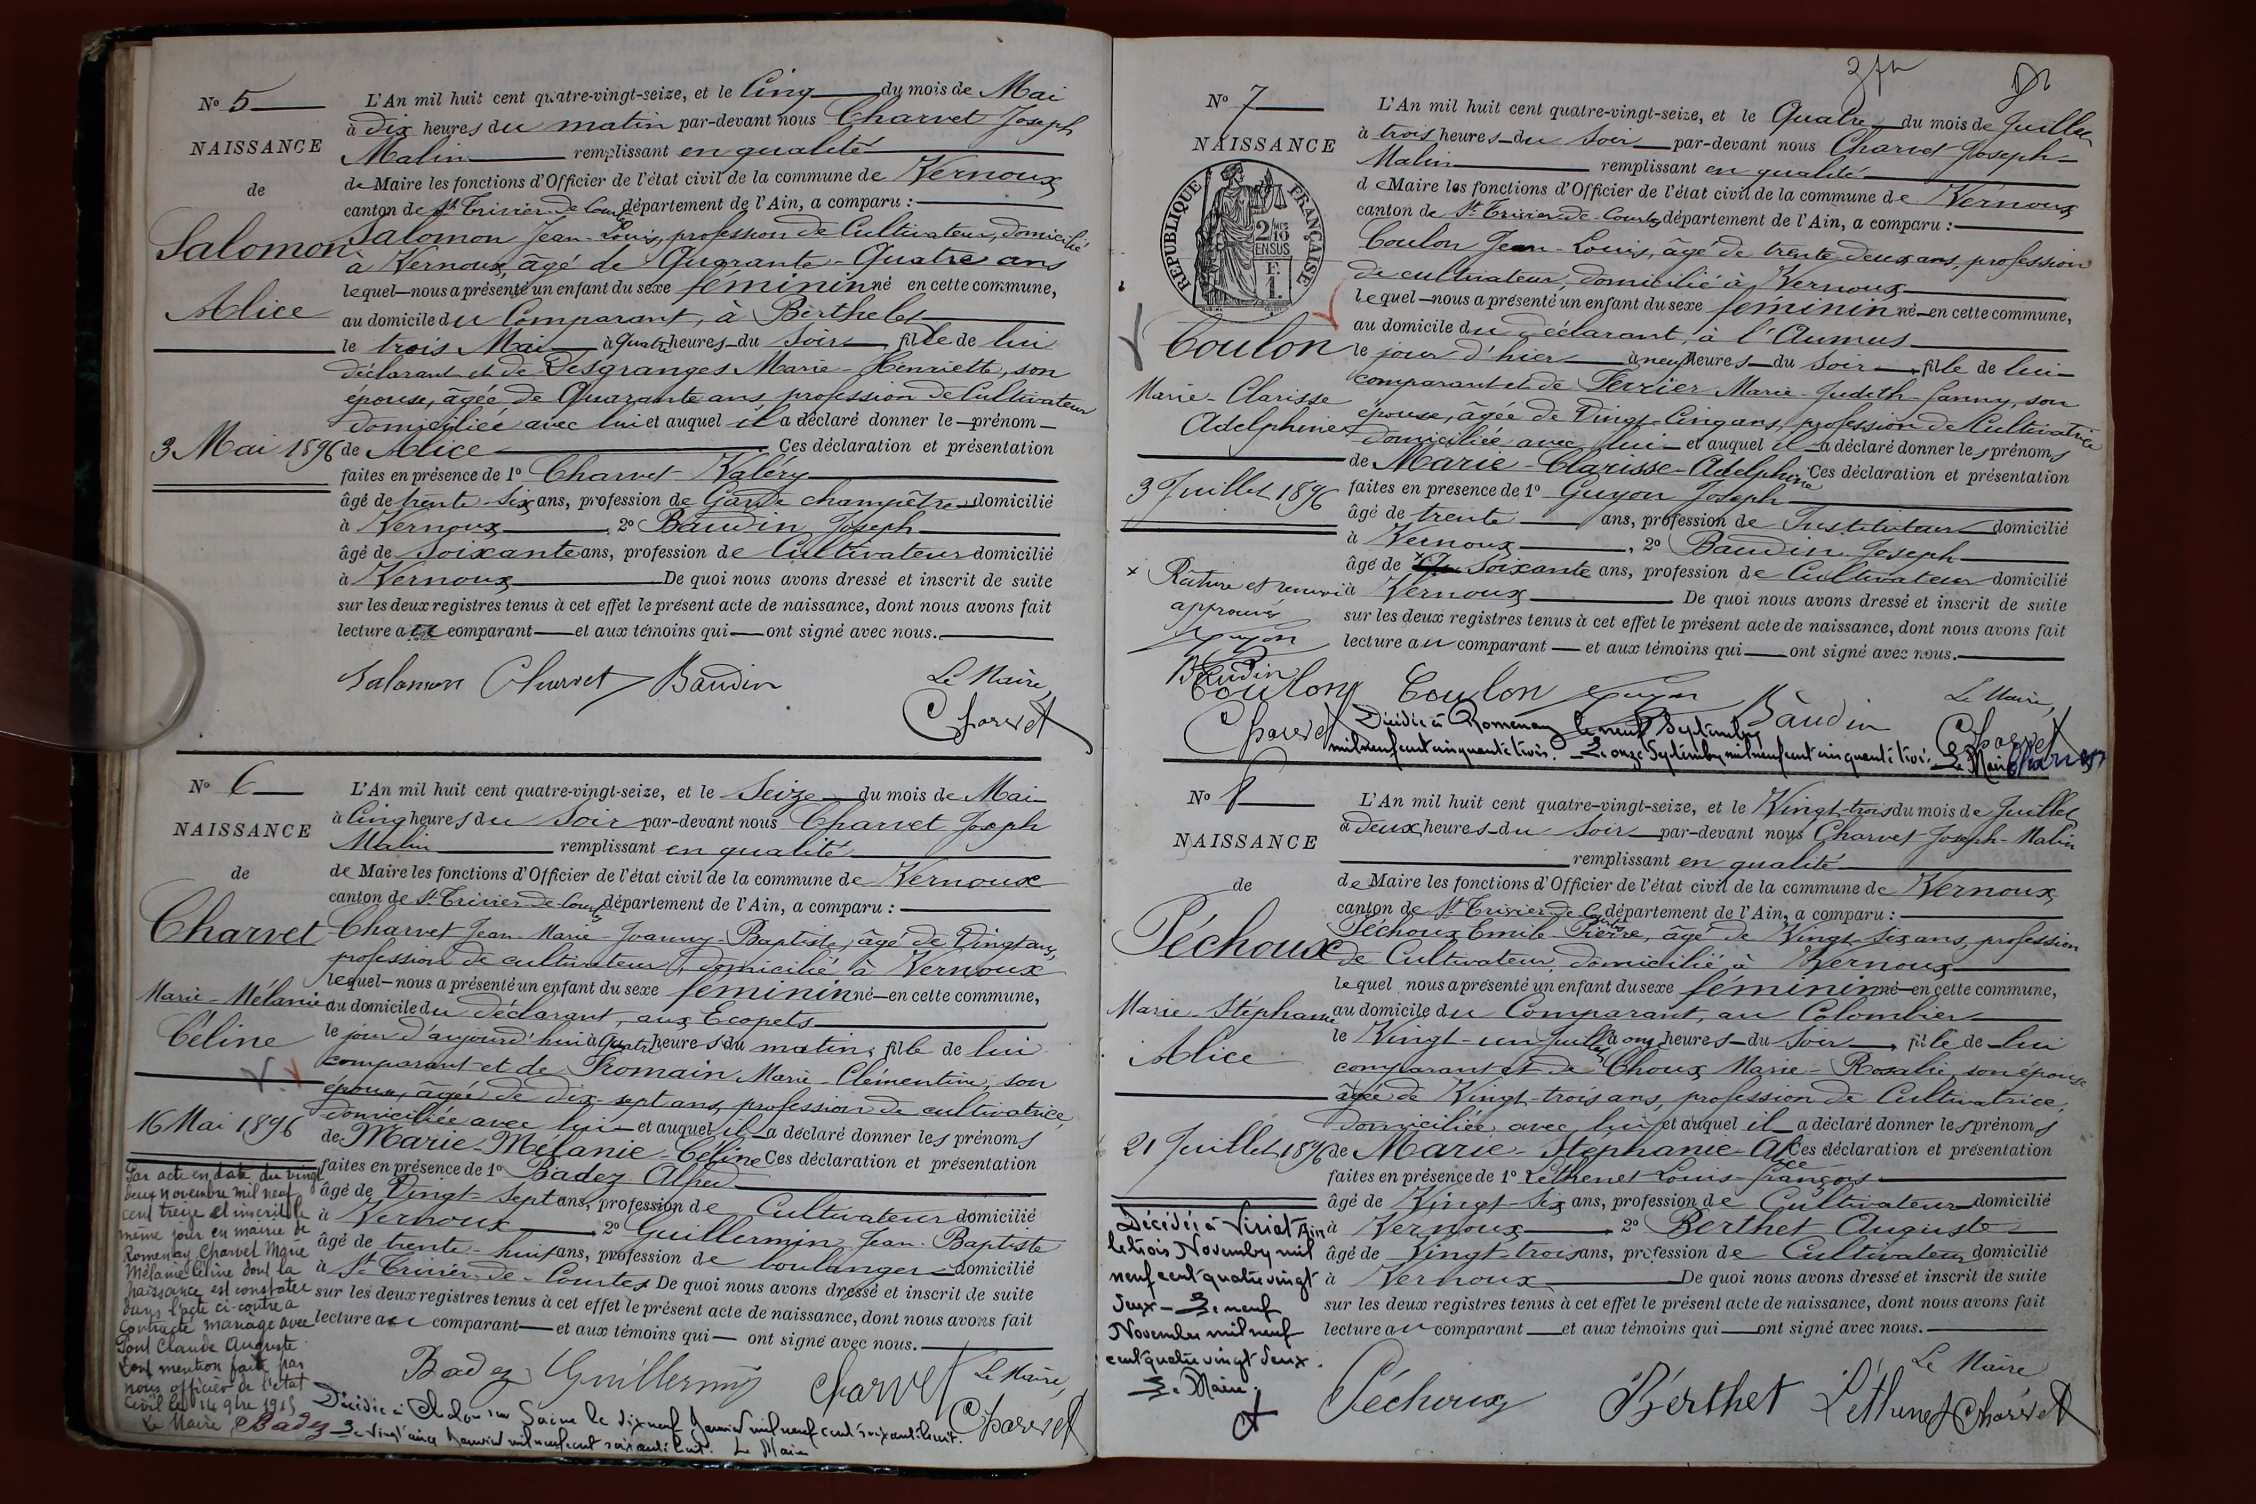 No 5
NAISSANCE
de
Salomon
Alice
3 Mai 1896
L'An mil huit cent quatre-vingt-seize, et le Cinq du mois de Mai
à dix heures du matin par-devant nous Charvet Joseph
Malin remplissant en qualité
de Maire les fonctions d'Officier de l'état civil de la commune de Vernoux
canton de St Trivier de Courtes département de l'Ain, a comparu :
Salomon Jean-Louis, profession de Cultivateur, domicilié
à Vernoux, âgé de Quarante-Quatre ans
lequel nous a présenté un enfant du sexe féminin né en cette commune,
au domicile du Comparant, à Berthelet
le trois Mai à quatre heures du soir fille de lui
déclarant et de Desgranges Marie-Henriette, son
épouse, âgée de Quarante ans, profession de Cultivateur
domiciliée avec lui et auquel il a déclaré donner le prénom
de Alice Ces déclaration et présentation
faites en présence de 1o Charvet Valéry
âgé de trente-six ans, profession de Garde champêtre domicilié
à Vernoux 2o Baudin Joseph
âgé de Soixante ans, profession de Cultivateur domicilié
à Vernoux De quoi nous avons dressé et inscrit de suite
sur les deux registres tenus à cet effet le présent acte de naissance, dont nous avons fait
lecture au comparant et aux témoins qui ont signé avec nous.
Salomon Charvet Baudin Le Maire,
Charvet
No 6
NAISSANCE
de
Charvet
Marie-Mélanie
Céline
16 Mai 1896
L'An mil huit cent quatre-vingt-seize, et le Seize du mois de Mai
à Cinq heures du Soir par-devant nous Charvet Joseph
Malin remplissant en qualité
de Maire les fonctions d'Officier de l'état civil de la commune de Vernoux
canton de St Trivier de Courtes département de l'Ain, a comparu :
Charvet Jean-Marie-Joanny-Baptiste, âgé de Vingt ans,
profession de cultivateur, domicilié à Vernoux
lequel nous a présenté un enfant du sexe féminin né en cette commune,
au domicile du déclarant, aux Ecopets
le jour d'aujourd'hui à quatre heures du matin, fille de lui
comparant et de Romain Marie-Clémentine, son
épouse, âgée de dix-sept ans, profession de cultivatrice,
domiciliée avec lui et auquel il a déclaré donner les prénoms
de Marie-Mélanie-Céline Ces déclaration et présentation
faites en présence de 1o Badez Alfred
âgé de Vingt-sept ans, profession de Cultivateur domicilié
à Vernoux 2o Guillermin Jean-Baptiste
âgé de trente-huit ans, profession de boulanger domicilié
à St Trivier-de-Courtes De quoi nous avons dressé et inscrit de suite
sur les deux registres tenus à cet effet le présent acte de naissance, dont nous avons fait
lecture au comparant et aux témoins qui ont signé avec nous.
Badez Guillermin Charvet Le Maire,
Charvet
Par acte en date du vingt
deux novembre mil neuf
cent treize et inscrit le
même jour en mairie de
Romenay Charvet Marie
Mélanie Céline dont la
naissance est constatée
dans l'acte ci-contre a
contracté mariage avec
Pont Claude Auguste
Dont mention faite par
nous officier de l'état
civil le 14 9bre 1915
Le Maire Badez
Décédée à Chalon sur Saône le dix neuf Janvier mil neuf cent soixante huit.
Le vingt cinq Janvier mil neuf cent soixante huit. Le Maire
No 7
NAISSANCE
RÉPUBLIQUE FRANÇAISE
2/10
EN SUS
F.
1.
Coulon
Marie-Clarisse
Adelphine
3 Juillet 1896
x Rature et renvoi
approuvés
Guyon
Baudin
Coulon
Charvet
L'An mil huit cent quatre-vingt-seize, et le Quatre du mois de Juillet
à trois heures du Soir par-devant nous Charvet Joseph
Malin remplissant en qualité
de Maire les fonctions d'Officier de l'état civil de la commune de Vernoux
canton de St Trivier-de-Courtes département de l'Ain, a comparu :
Coulon Jean-Louis, âgé de trente deux ans, profession
de cultivateur, domicilié à Vernoux
lequel nous a présenté un enfant du sexe féminin né en cette commune,
au domicile du déclarant, à l'Aumus
le jour d'hier à neuf heures du soir fille de lui
comparant et de Ferrier Marie-Judith-Fanny, son
épouse, âgée de Vingt-Cinq ans, profession de Cultivatrice
domiciliée avec lui et auquel il a déclaré donner les prénoms
de Marie-Clarisse-Adelphine Ces déclaration et présentation
faites en présence de 1o Guyon Joseph
âgé de trente ans, profession de Instituteur domicilié
à Vernoux, 2o Baudin Joseph
âgé de Soixante ans, profession de Cultivateur domicilié
à Vernoux De quoi nous avons dressé et inscrit de suite
sur les deux registres tenus à cet effet le présent acte de naissance, dont nous avons fait
lecture au comparant et aux témoins qui ont signé avec nous.
Coulon Guyon Baudin Le Maire,
Charvet
Décédée à Romenay le neuf Septembre
mil neuf cent cinquante trois. Le onze Septembre mil neuf cent cinquante trois. Le Maire
No 8
NAISSANCE
de
Péchoux
Marie-Stéphanie
Alice
21 Juillet 1896
L'An mil huit cent quatre-vingt-seize, et le Vingt-trois du mois de Juillet
à deux heures du Soir par-devant nous Charvet Joseph-Malin
remplissant en qualité
de Maire les fonctions d'Officier de l'état civil de la commune de Vernoux
canton de St Trivier de Courtes département de l'Ain, a comparu :
Péchoux Emile-Pierre, âgé de Vingt-six ans, profession
de Cultivateur, domicilié à Vernoux
lequel nous a présenté un enfant du sexe féminin né en cette commune,
au domicile du Comparant, au Colombier
le Vingt-un Juillet à onze heures du Soir, fille de lui
comparant et de Choux Marie-Rosalie, son épouse
âgée de Vingt-trois ans, profession de Cultivatrice,
domiciliée avec lui et auquel il a déclaré donner les prénoms
de Marie-Stéphanie-Alice Ces déclaration et présentation
faites en présence de 1o Léthenet Louis-François
âgé de Vingt-Six ans, profession de Cultivateur domicilié
à Vernoux 2o Berthet Auguste
âgé de Vingt-trois ans, profession de Cultivateur domicilié
à Vernoux De quoi nous avons dressé et inscrit de suite
sur les deux registres tenus à cet effet le présent acte de naissance, dont nous avons fait
lecture au comparant et aux témoins qui ont signé avec nous.
Péchoux Berthet Léthenet Le Maire
Charvet
Décédée à Viriat Ain
le trois Novembre mil
neuf cent quatre vingt
deux - Le neuf
Novembre mil neuf
cent quatre vingt deux.
Le Maire.